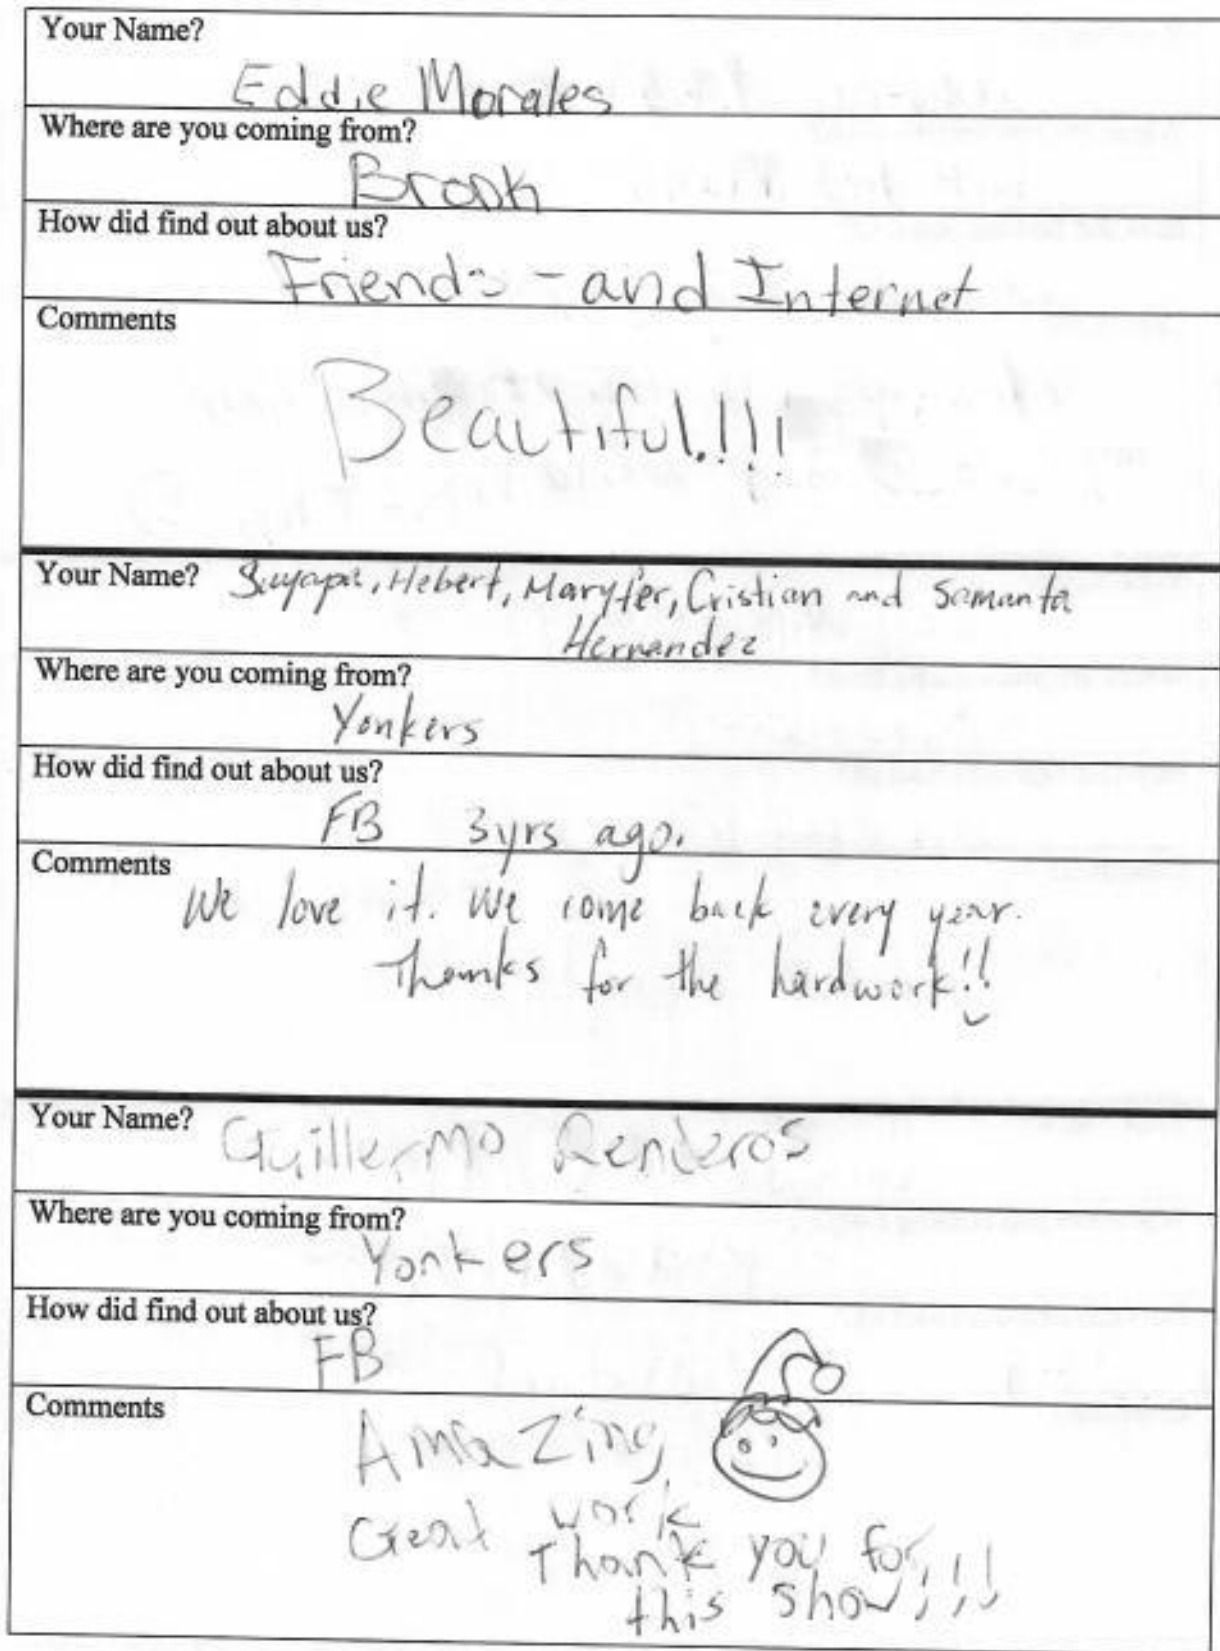 Your Name?
Eddie Morales
Where are you coming from?
Bronx
How did find out about us?
Friends - and Internet
Comments
Beautiful.!!!
Your Name? Suyapa, Hebert, Maryfer, Cristian and Samanta
Hernandez
Where are you coming from?
Yonkers
How did find out about us?
FB 3yrs ago.
Comments
We love it. We come back every year.
Thanks for the hardwork!!
Your Name? Guillermo Renderos
Where are you coming from?
Yonkers
How did find out about us?
FB
Comments
Amazing
Great work
Thank you for
this show!!!